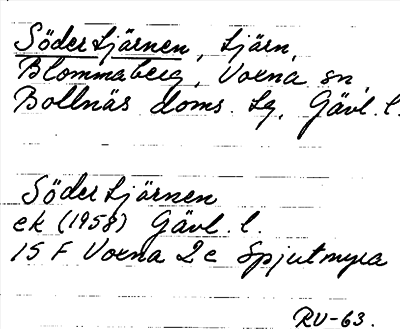 Södertjärnen, tjärn,
Blommaberg, Voxna sn,
Bollnäs doms. tg, Gävl. l.
Södertjärnen
ek (1958) Gävl. l.
15 F Voxna 2 c Spjutmyra
RV-63.